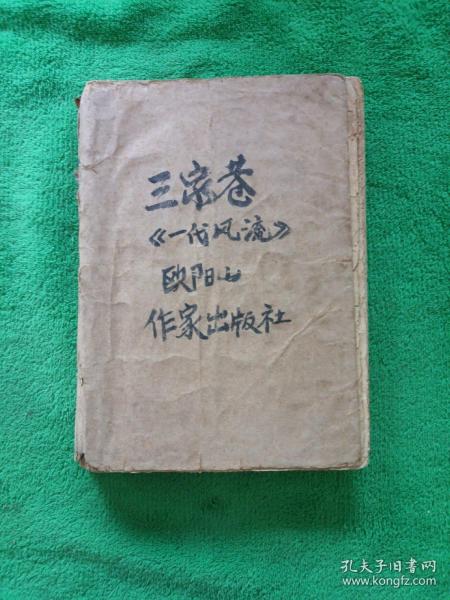 三宗巷
《一代风流》
欧阳山
作家出版社
孔夫子旧书网
www.kongfz.com